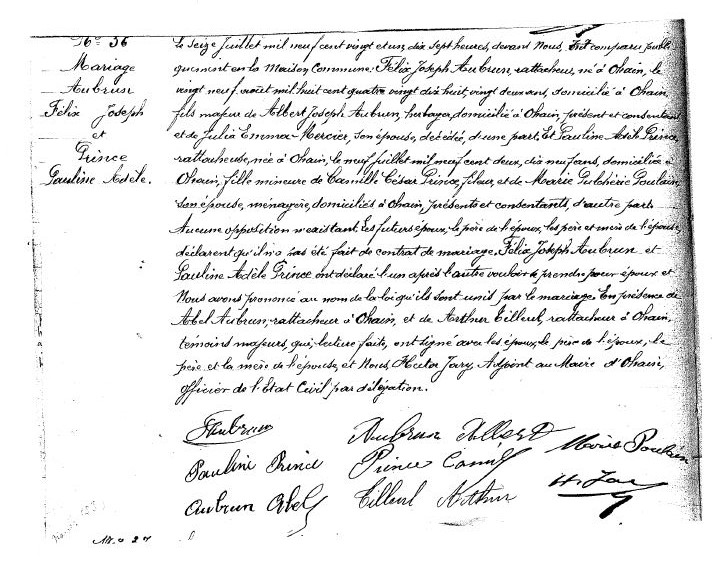 N° 36
Mariage
Aubrun
Félix Joseph
et
Prince
Pauline Adèle.
Le seize Juillet mil neuf cent vingt et un, dix sept heures, devant Nous, ont comparu publi-
quement en la Maison Commune: Félix Joseph Aubrun, rattacheur, né à Ohain, le
vingt neuf août mil huit cent quatre vingt dix huit, vingt deux ans, domicilié à Ohain,
fils majeur de Albert Joseph Aubrun, herbager, domicilié à Ohain, présent et consentant
et de Julia Emma Mercier, son épouse, décédée, d'une part. Et Pauline Adèle Prince,
rattacheuse, née à Ohain, le neuf juillet mil neuf cent deux, dix neuf ans, domiciliée à
Ohain, fille mineure de Camille César Prince, fileur, et de Marie Pulchérie Poulain,
son épouse, ménagère, domiciliés à Ohain, présents et consentants, d'autre part.
Aucune opposition n'existant, les futurs époux, le père de l'époux, les père et mère de l'épouse,
déclarent qu'il n'a pas été fait de contrat de mariage. Félix Joseph Aubrun et
Pauline Adèle Prince ont déclaré l'un après l'autre vouloir se prendre pour époux et
Nous avons prononcé au nom de la loi qu'ils sont unis par le mariage. En présence de
Abel Aubrun, rattacheur à Ohain, et de Arthur Tilleul, rattacheur à Ohain,
témoins majeurs, qui, lecture faite, ont signé avec les époux, le père de l'époux, le
père et la mère de l'épouse, et Nous, Hector Jary, Adjoint au Maire d'Ohain,
officier de l'Etat Civil par délégation.
FAubrun Aubrun Albert
Pauline Prince Prince Camille Marie Poulain
Aubrun Abel Tilleul Arthur H. Jary